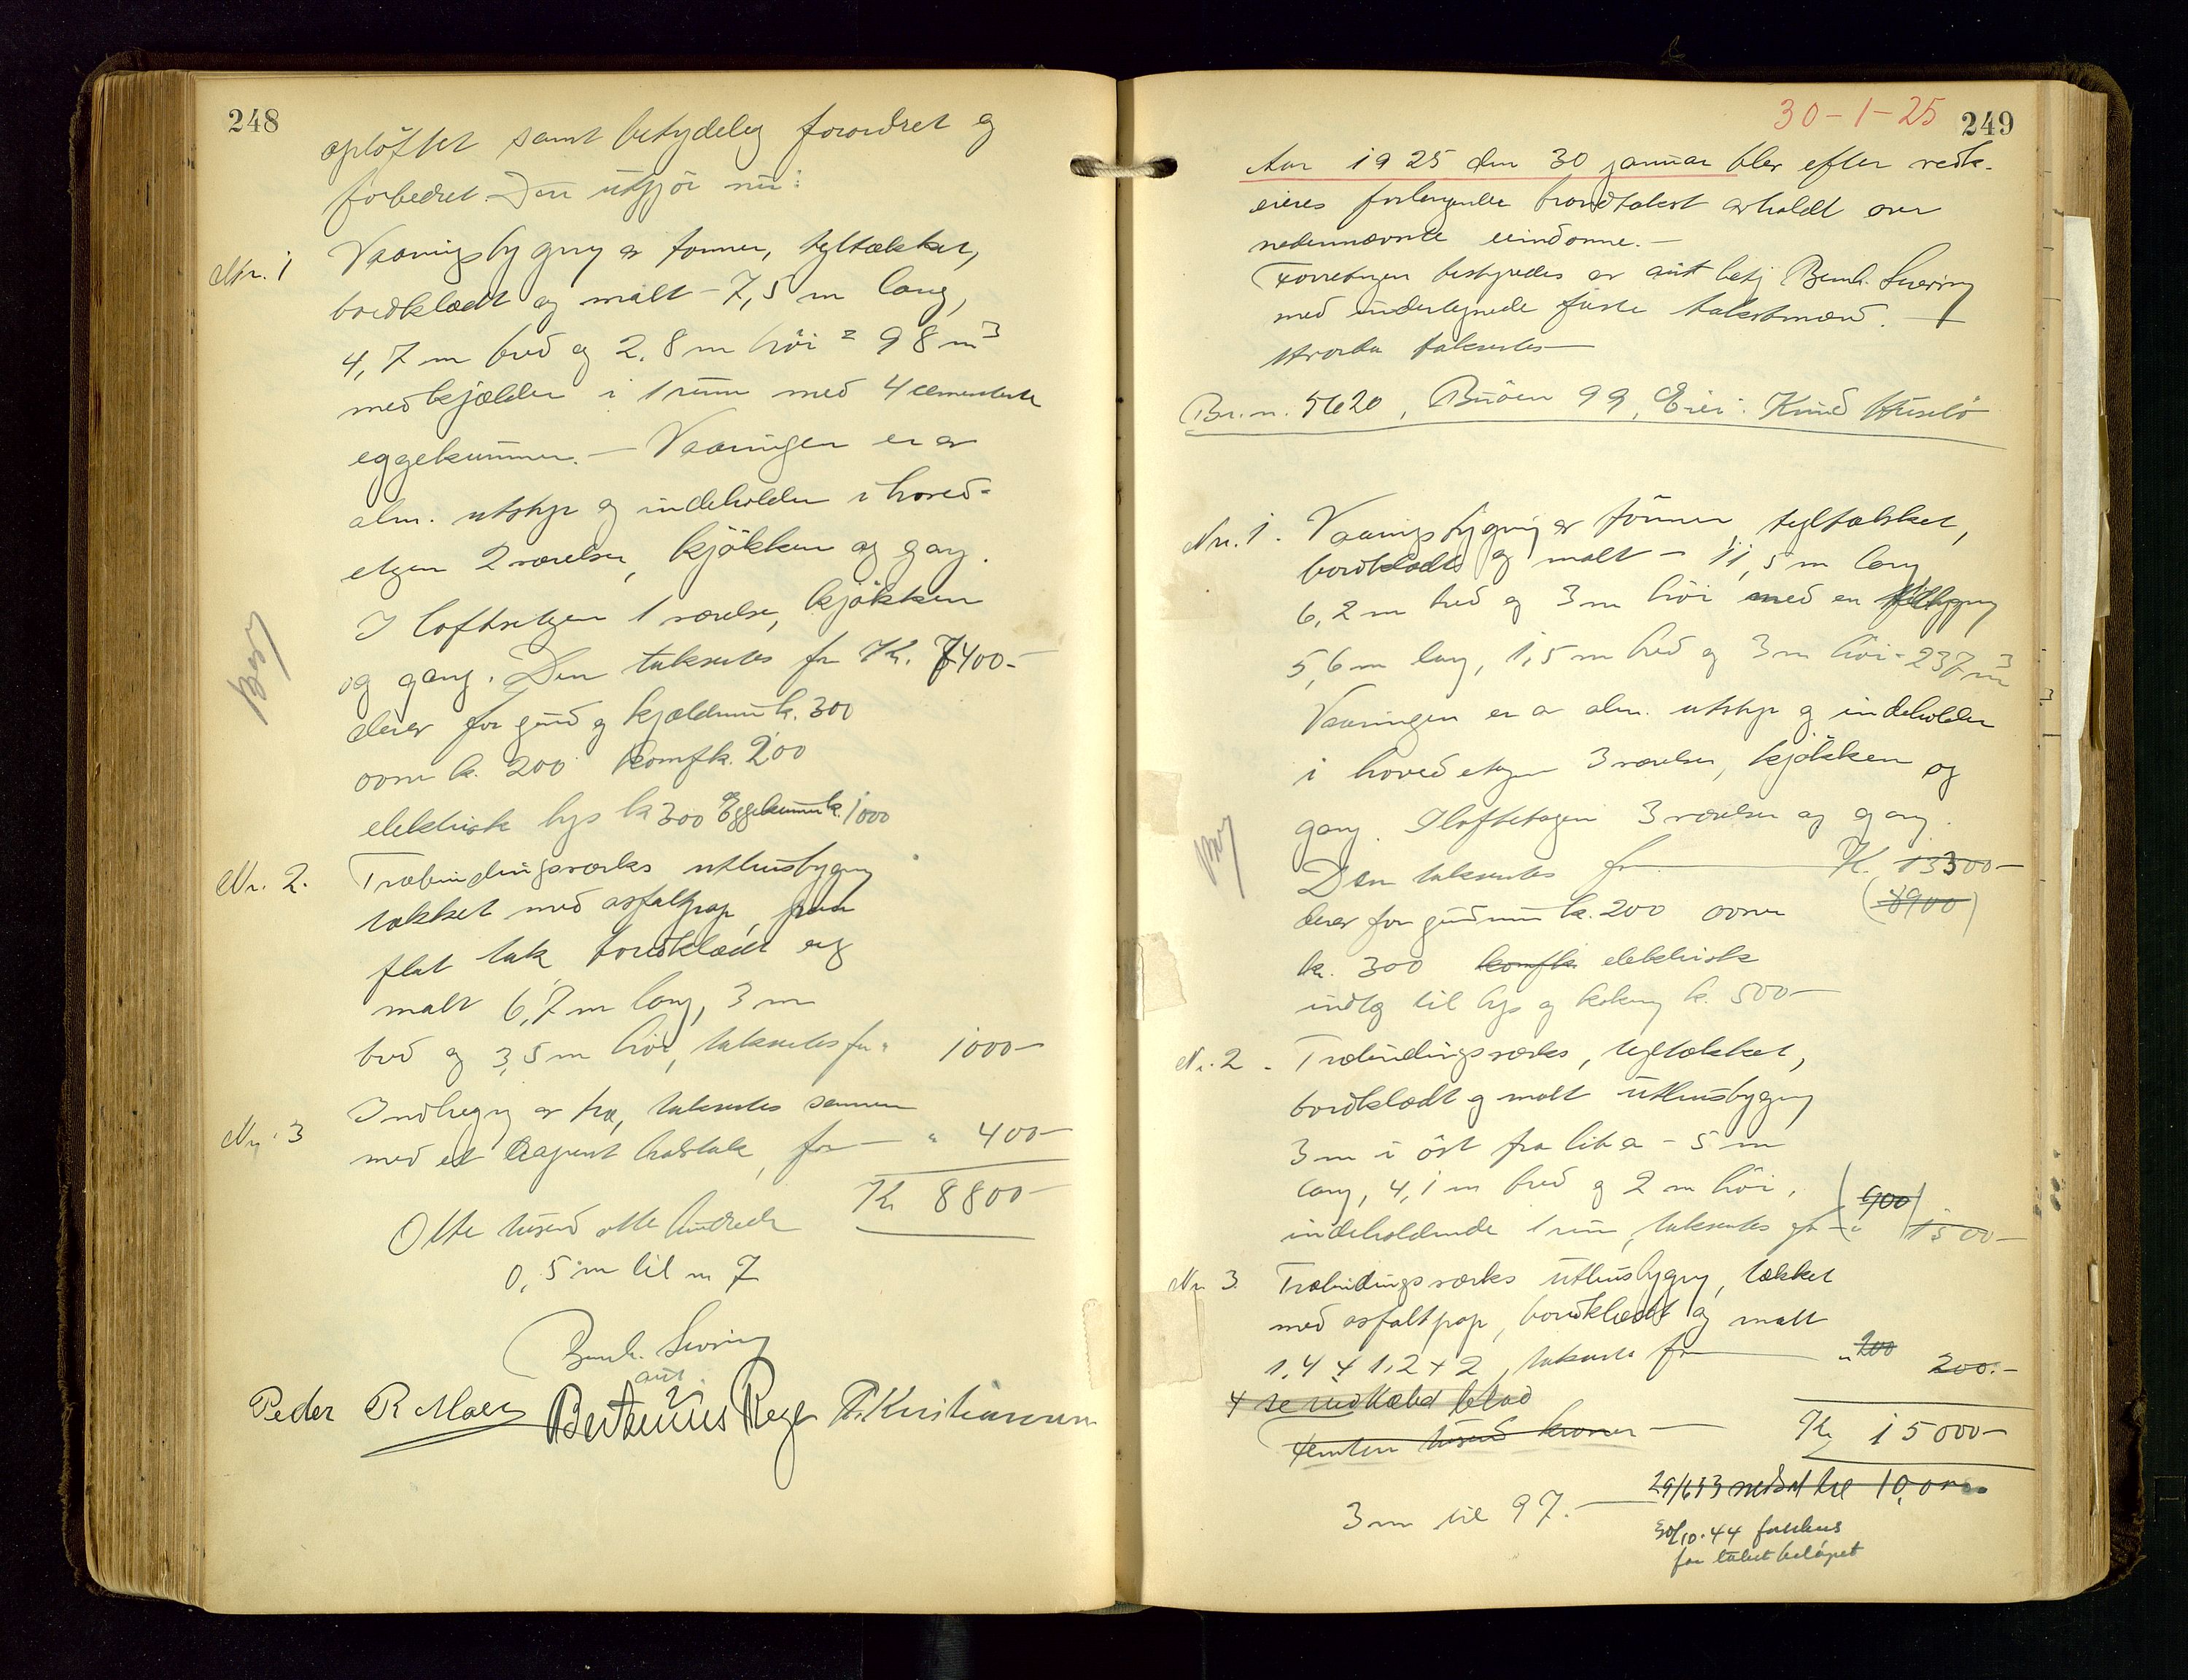 248
opløftet samt betydelig forandret og
forbedret. Den utgjør nu:
Nr. 1 Vaaningsbygning av tømmer, tegltækket,
bordklædt og malt - 7,5 m lang,
4,7 m bred og 2,8 m høi = 98 m3
med kjælder i 1 rum med 4 cementerte
eggekummer. - Vaaningen er av
alm. utstyr og indeholder i hoved-
etagen 2 værelser, kjøkken og gang.
I loftsetagen 1 værelse, kjøkken
og gang. Den takseres for Kr. 7400-
derav for grund og kjældermur k. 300
ovne k. 200 komf k. 200
elektrisk lys k 300 Eggekummer k. 1000
Nr. 2. Træbindingsværks uthusbygning
tækket med asfaltpap, paa
flat tak bordklædt og
malt 6,7 m lang, 3 m
bred og 3,5 m høi, takseres for " 1000-
Nr. 3 Indhegning av træ, takseres sammen
med et halvtak, for - " 400-
Kr 8800-
Otte tusend otte hundrede
0,5 m til nr 7
Bernh. Svering
aut.
Peder R Moen Bertinius Rege P. Kristiansen
30-1-25 249
Aar 1925 den 30 januar blev efter vedk.
eieres forlangende brandtakst avholdt over
nedennævnte eiendomme. -
Forretningen bestyredes av aut betj Bernh. Svering
med undertegnede faste takstmænd. -
Hvorda takseredes -
Br.nr. 5620, Buøen 99, Eier: Knud Huselø
Nr. 1. Vaaningsbygning av tømmer, tegltækket,
bordklædt og malt - 11,5 m lang
6,2 m bred og 3 m høi med en tilbygning
5,6 m lang, 1,5 m bred og 3 m høi = 237 m3
Vaaningen er av alm. utstyr og indeholder
i hovedetagen 3 værelser, kjøkken og
gang. I loftsetagen 3 værelser og gang.
Den takseres for - Kr. 13300-
derav for grundmur k. 200 ovner (8900)
k. 300 komfk. elektrisk
indlæg til lys og kokning k. 500-
Nr. 2. Træbindingsværks, tegltækket,
bordklædt og malt uthusbygning
3 m i øst fra litra - 5 m
lang, 4,1 m bred og 2 m høi,
indeholdende 1 rum, takseres for - " (900) 1500-
Nr. 3. Træbindingsværks uthusbygning, tækket
med asfaltpap, bordklædt og malt
1,4 x 1,2 x 2, takseres for - " 200 200.-
x se vedhæftet blad
Femten tusend kroner - Kr 15000-
29/6 33 nedsat til 10,000
3 m til 97. -
30/10.44 forhøies
for takstbeløpet